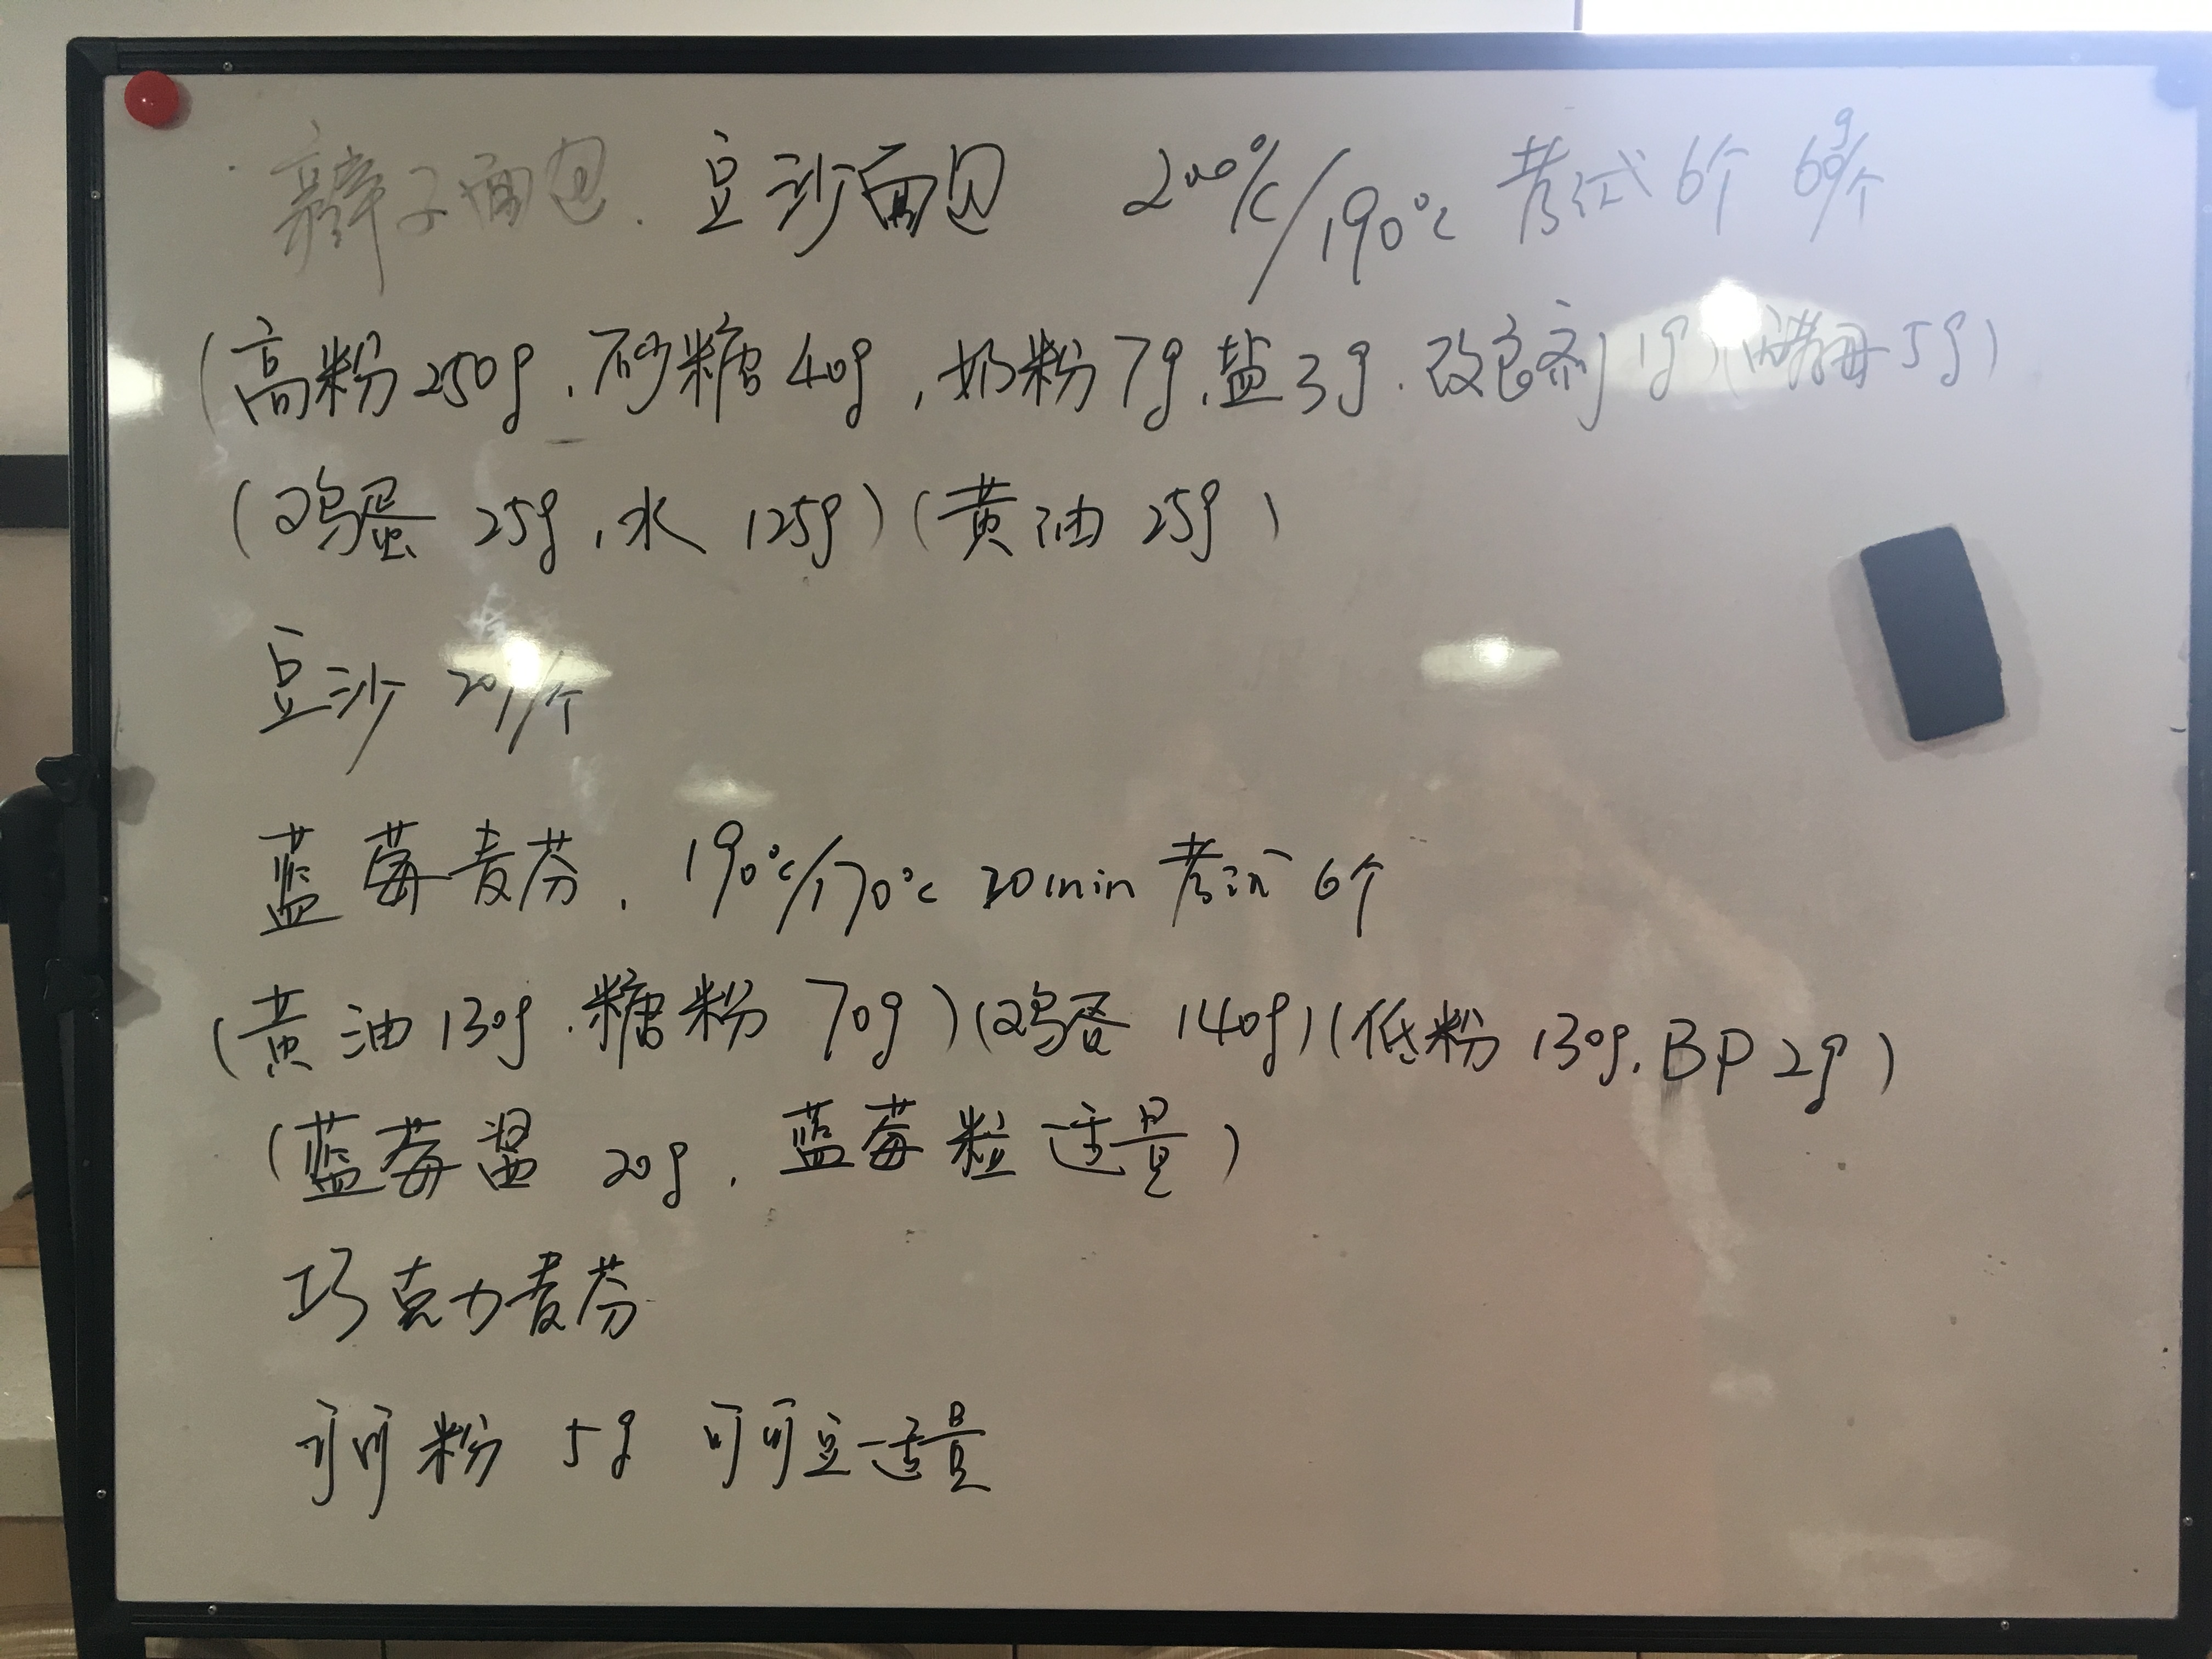 辫子面包. 豆沙面包 200℃/190℃ 考试6个 60g/个
(高粉250g.砂糖40g,奶粉7g.盐3g.改良剂1g)(酵母5g)
(鸡蛋 25g,水 125g)(黄油 25g)
豆沙 20g/个
蓝莓麦芬. 190℃/170℃ 20min 考试 6个
(黄油130g.糖粉 70g)(鸡蛋 140g)(低粉 130g.BP 2g)
(蓝莓酱 20g. 蓝莓粒适量)
巧克力麦芬
可可粉 5g 可可豆适量